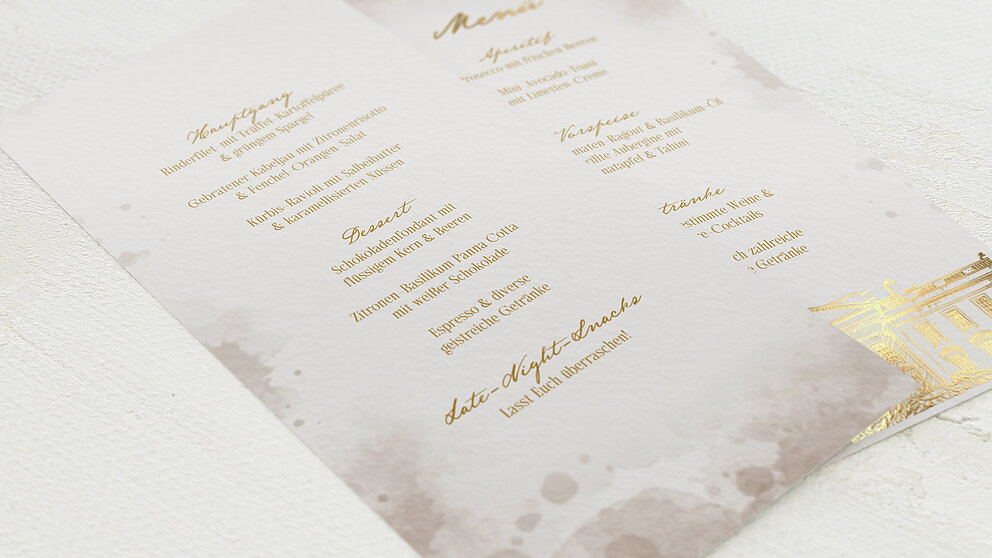 Hauptgang
Rinderfilet mit Trüffel Kartoffelpüree
& grüngem Spargel
Gebratener Kabeljau mit Zitronenrisotto
& Fenchel Orangen Salat
Kürbis-Ravioli mit Salbeibutter
& karamellisierten Nüssen
Dessert
Schokoladenfondant mit
flüssigem Kern & Beeren
Zitronen-Basilikum Panna Cotta
mit weißer Schokolade
Espresso & diverse
geistreiche Getränke
Late-Night-Snacks
Lasst Euch überraschen!
Menü
Aperitif
Prosecco mit frischen Beeren
Mini Avocado Toast
mit Limetten-Creme
Vorspeise
maten Ragout & Basilikum-Öl
rillte Aubergine mit
natapfel & Tahini
tränke
stimmte Weine &
e Cocktails
ch zahlreiche
e Getränke